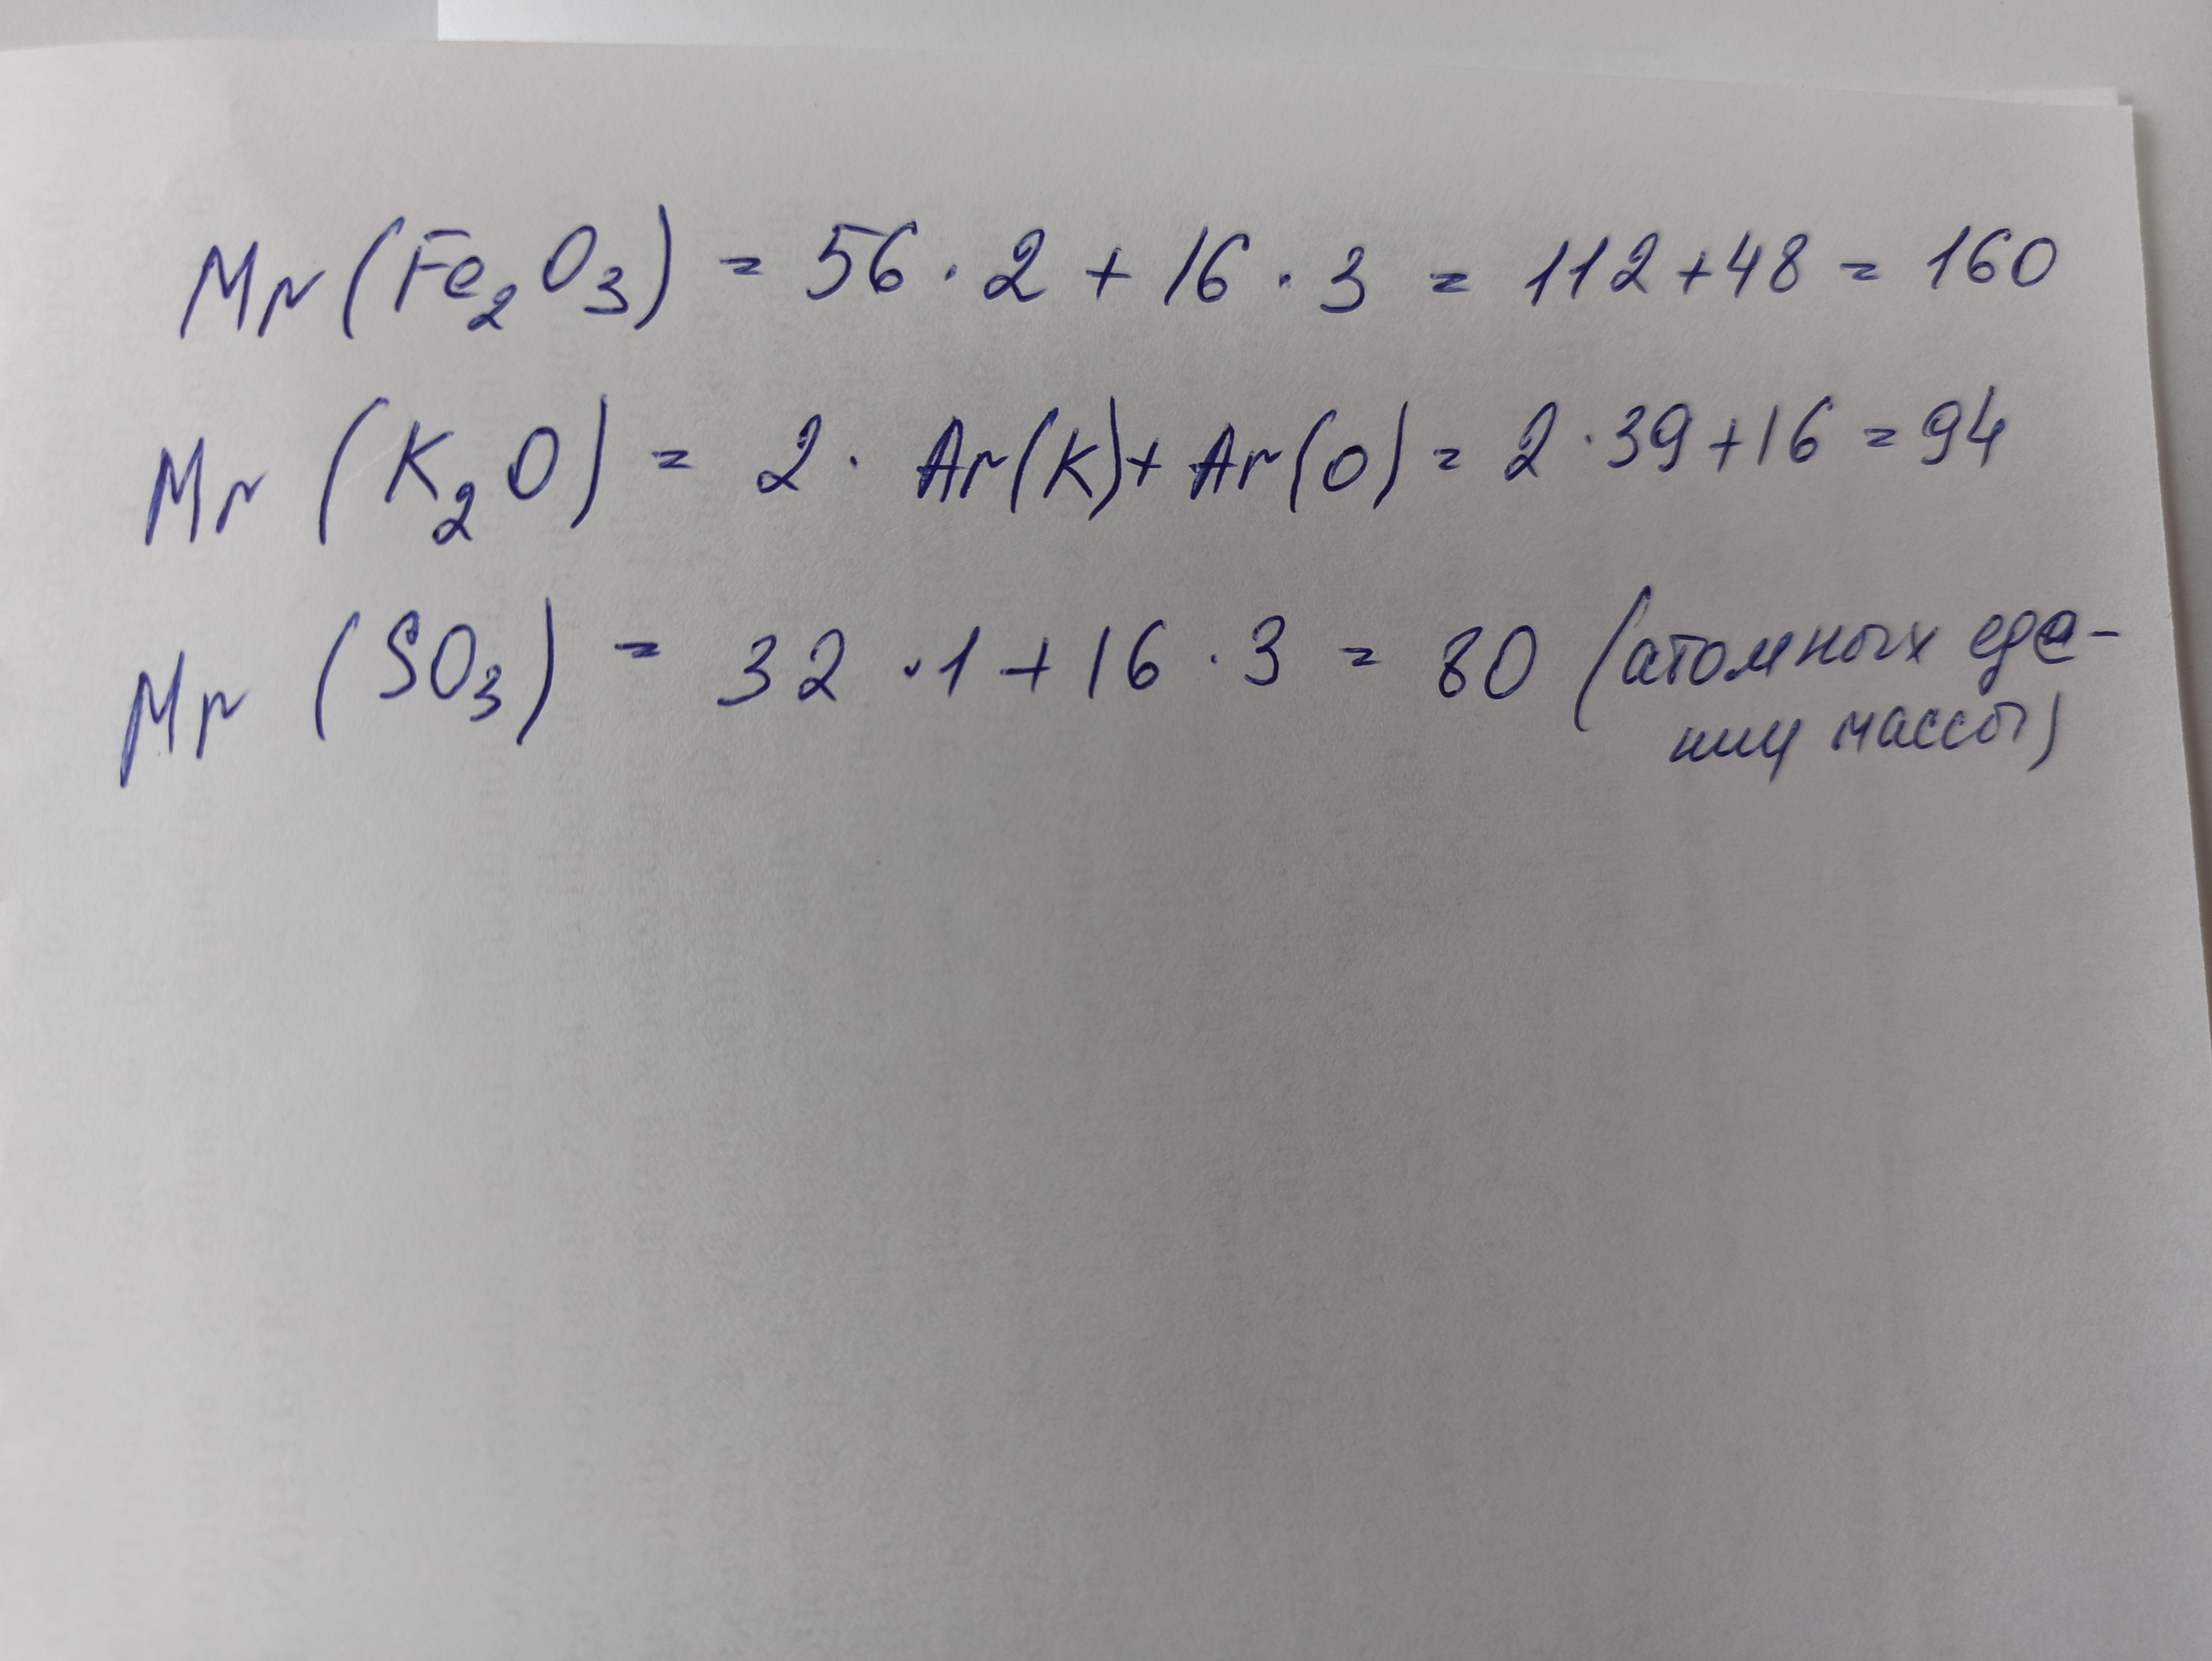 Mr(Fe₂O₃) = 56·2 + 16·3 = 112+48 = 160
Mr (K₂O) = 2· Ar(K)+ Ar(O) = 2·39+16 = 94
Mr (SO₃) = 32·1+16·3 = 80 (атомных еде-
ниц массы)